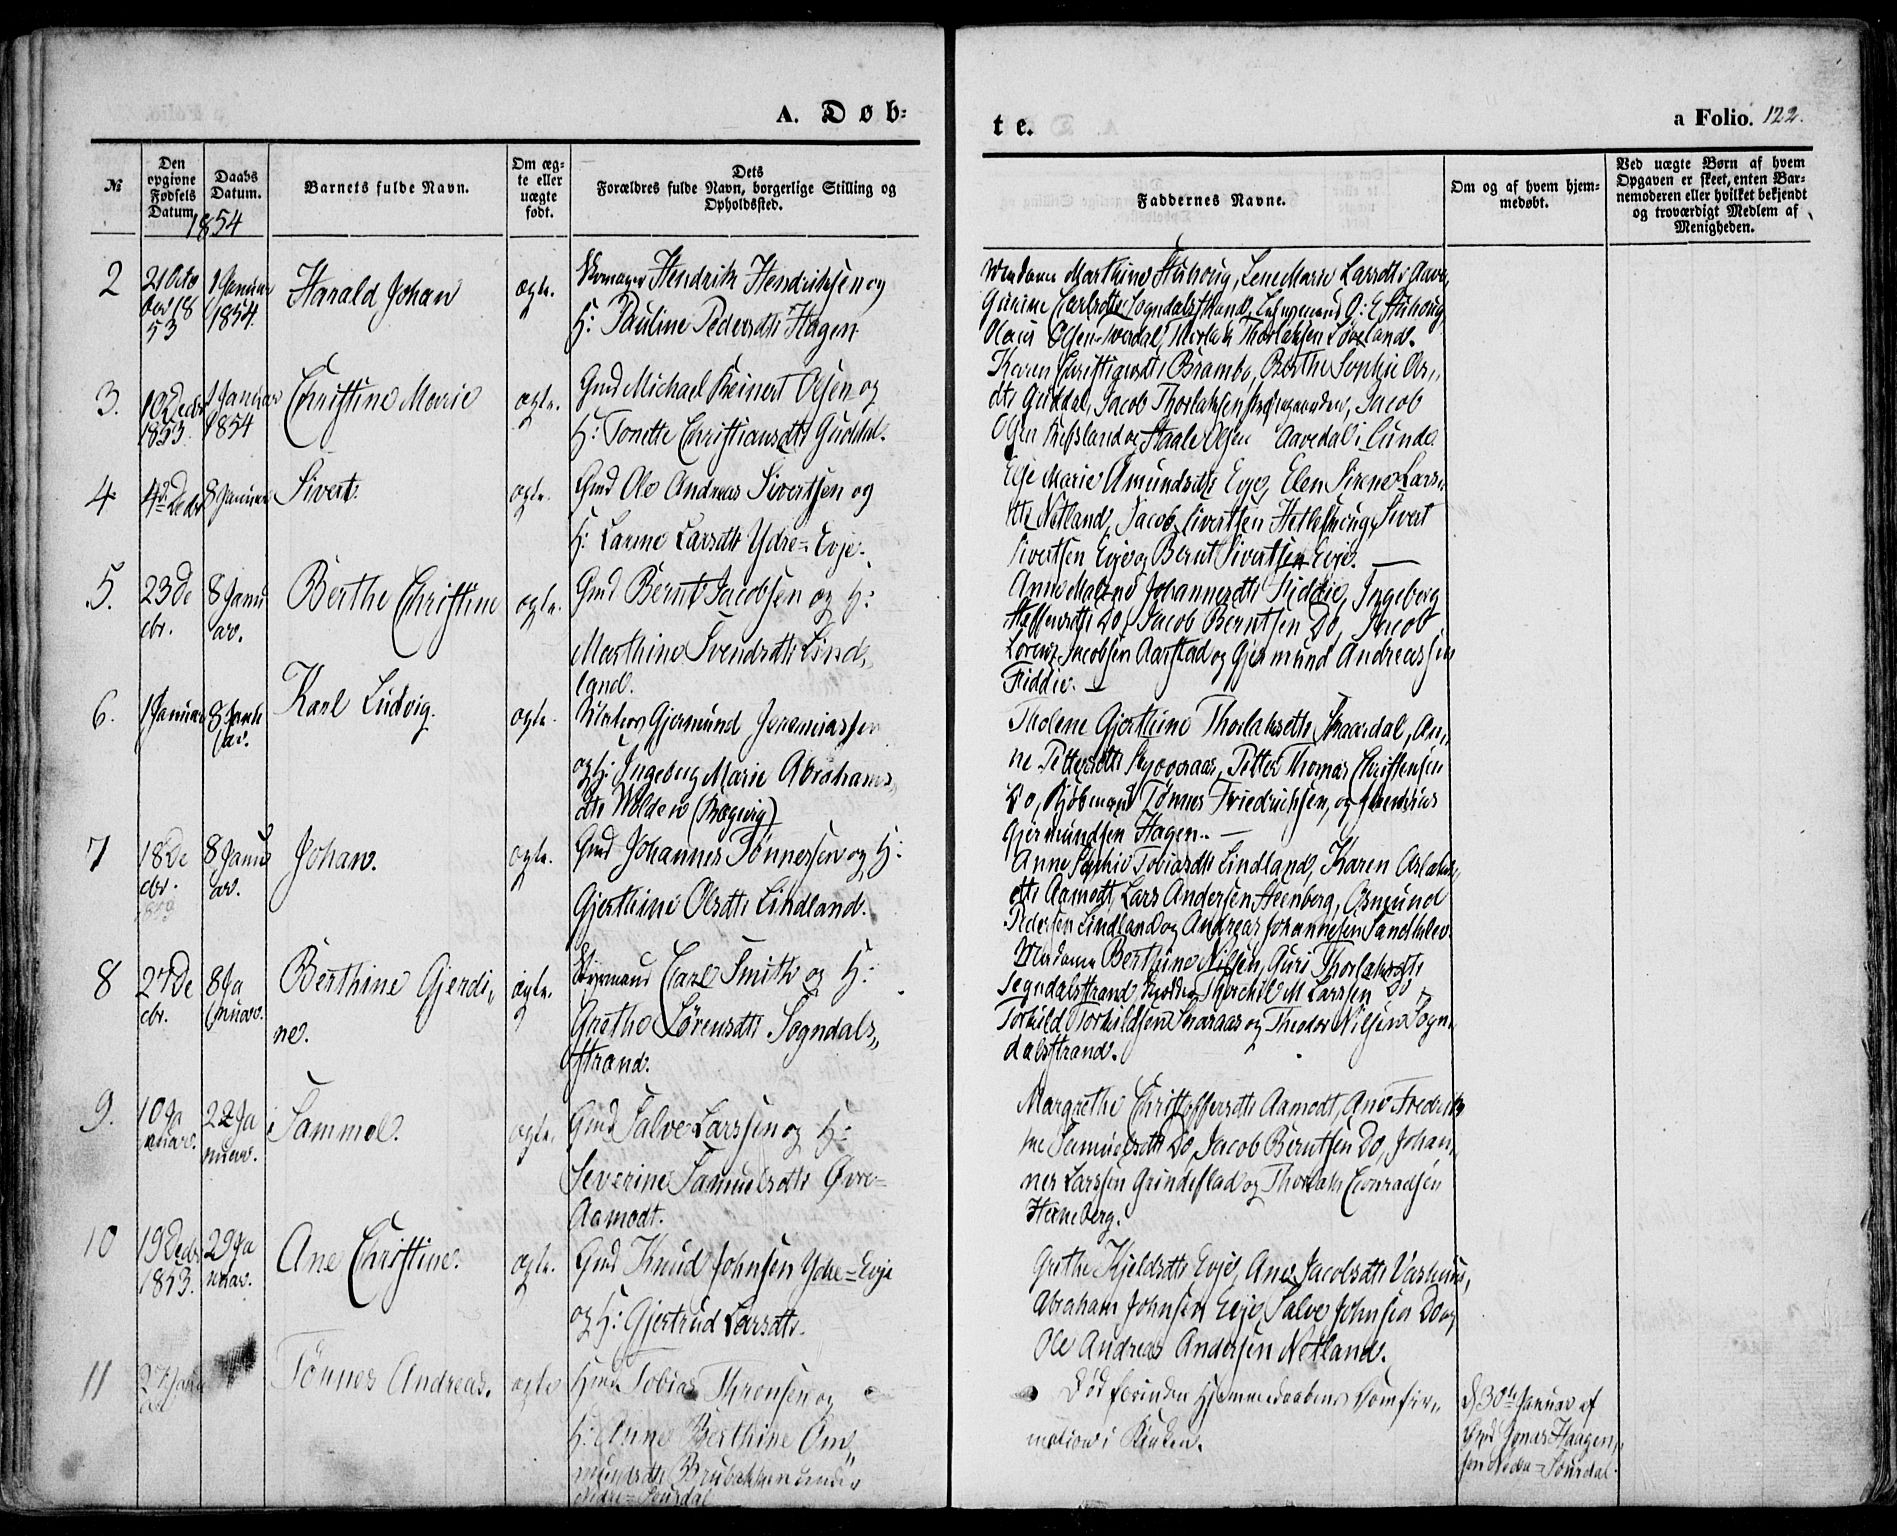 A. Døb-
te.
a Folio. 122.
№
Den opgivne Fødsels Datum.
Daabs Datum.
1854
Barnets fulde Navn.
Om ægte eller uægte født.
Dets
Forældres fulde Navn, borgerlige Stilling og
Opholdssted.
Faddernes Navne.
Om og af hvem hjem-
medøbt.
Ved uægte Børn af hvem
Opgaven er skeet, enten Bar-
nemoderen eller hvilket bekjendt
og troværdigt Medlem af
Menigheden.
2
21 Octo
ber 18
53
1 Januar
1854.
Harald Johan
ægte.
Hendrik Hendriksen og
H: Pauline Pedersdtr Hagen
Madame Marthine Stuhoug, Lene Marie Larsdtr
Gurine Carlsdtr Sogndalsstrand, Lehnsmand O: E Stuhoug
Olaus Olsen Tverdal, Thorlak Thorlaksen Løveland.
3.
19 Decbr
1853.
1 Januar
1854
Christine Marie
ægte.
Gmd Michael Reinert Olsen og
H: Tonette Christiansdtr Guddal.
Karen Christiansdtr Brambo, Berthe Sophie Ols,,
dtr Guddal, Jacob Thorlaksen, Jacob
Olsen Refsland og Staale Olsen Aavedal i Lunde
4
4de Decbr
8 Januar
Sivert.
ægte.
Gmd Ole Andreas Sivertsen og
H: Larine Larsdtr Ydre-Evje.
Marie Amundsdtr Evje, Elen Sirene Lars,,
dtr Netland, Jacob Sivertsen Hetleskoug, Sivert
Sivertsen Evje og Bernt Sivertsen Evje. —
5.
23 De
cbr.
8 Janu
ar.
Berthe Christine
ægte.
Gmd Bernt Jacobsen og H:
Marthine Svendsdtr Lind,,
land.
Anne Malene Johannesdtr Fiddie, Ingeborg
Steffensdtr Do, Jacob Berntsen Do, Jacob
Lorenz Jacobsen Aarstad og Gjermund Andreassen
Fiddie. —
6.
1 Januar
8 Janu
ar.
Karl Ludvig.
ægte.
Gjermund Jeremiassen
og H: Ingeborg Marie Abrahams,,
dtr Wolden (Rægevig)
Tholene Gjerthine Thorlaksdtr Skaardal, An,,
ne Pettersdtr, Petter Thomas Christensen
Do, Kjøbmand Tønnes Friedrichsen, og Jeremias
Gjermundsen Hagen. —
7
18 De
cbr.
1853
8 Janu
ar.
Johan.
ægte.
Gmd Johannes Tønnessen og H:
Gjerthine Olsdtr Lindland.
Anne Sophie Tobiasdtr Lindland, Karen Aslaks,,
dtr Aamodt, Lars Andersen Steenberg, Osmund
Pedersen Lindland og Andreas Johannesen Sandklev.
8
27 De
cbr.
8 Ja
nuar.
Berthine Gjerdi,,
ne.
ægte.
Styrmand Carl Smith og H:
Grethe Lørensdtr Sogndals,,
strand.
Madame Berthine Nilsen, Guri Thorlaksdtr
Sogndalsstrand, Thorchil M Larssen Do,
Torkild Torkildsen og Theodor Nilsen Sogn,,
dalsstrand.
9.
10 Ja
nuar.
22 Ja
nuar.
Sammel.
ægte.
Gmd Salve Larssen og H:
Severine Samuelsdtr Øvre-
Aamodt.
Margrethe Christoffersdtr Aamodt, Ane Fredrik,,
ke Samuelsdtr Do, Jacob Berntsen Do, Johan,,
nes Larssen Grindeflad og Thorlak Conradsen
Steneberg.
10
19 Decbr
1853.
29 Ja
nuar.
Ane Christine.
ægte.
Gmd Knud Johnsen Ydre-Evje
og H: Gjertrud Larsdtr.
Grethe Kjeldsdtr Evje, Ane Jacobsdtr Vashuus,
Abraham Johnsen Evje, Salve Johnsen Do og
Ole Andreas Andersen Netland.
11
27 Janu
ar
Tønnes Andreas.
ægte
Tobias Thronsen og
H: Anne Berthine Om,,
mundsdtr Brubakken under
Nedre-Sourdal
Død forinden Hjemmedaabens Comfir,,
mation i Kirken.
d 30te Januar af
Gmd Jonas Haagen,,
sen Nedre-Sourdal.